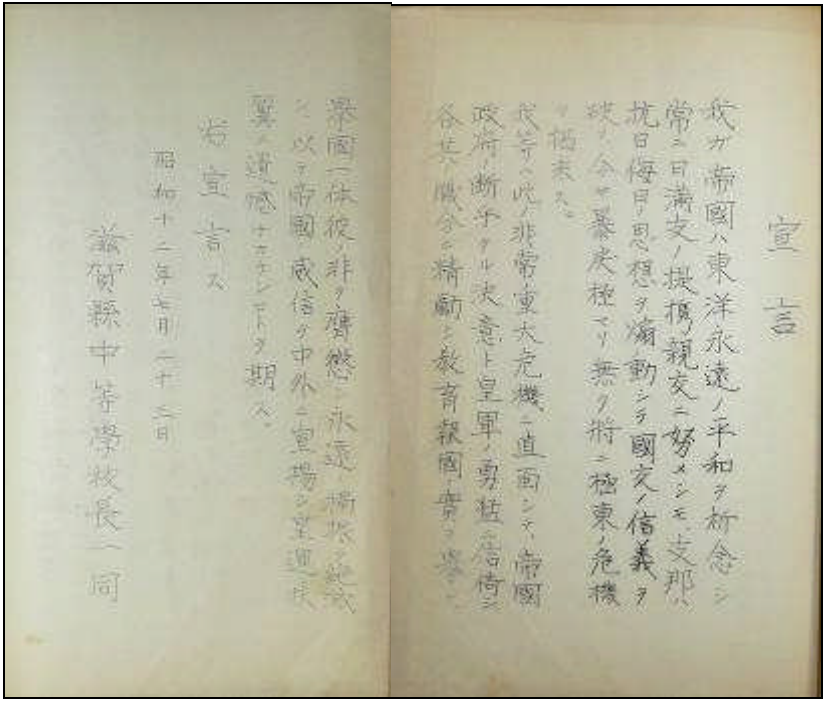 宣言
我ガ帝國ハ東洋永遠ノ平和ヲ祈念シ
常ニ日滿支ノ提携親交ニ努メシモ、支那ハ
抗日侮日ノ思想ヲ煽動シテ國交ノ信義ヲ
破リ今ヤ暴戻極マリ無ク将ニ極東ノ危機
ヲ招来ス。
我等ハ此ノ非常重大危機ニ直面シテ、帝國
政府ノ断乎タル決意ト皇軍ノ勇猛ニ信倚シ
各其ノ職分ニ精勵シ教育報國ノ實ヲ擧ゲ
擧國一体彼ノ非ヲ膺懲シ永遠ノ禍根ヲ絶滅
シ以テ帝國ノ威信ヲ中外ニ宣揚シ皇運扶
翼ニ遺憾ナカランコトヲ期ス。
右宣言ス
昭和十二年七月二十三日
滋賀縣中等學校長一同